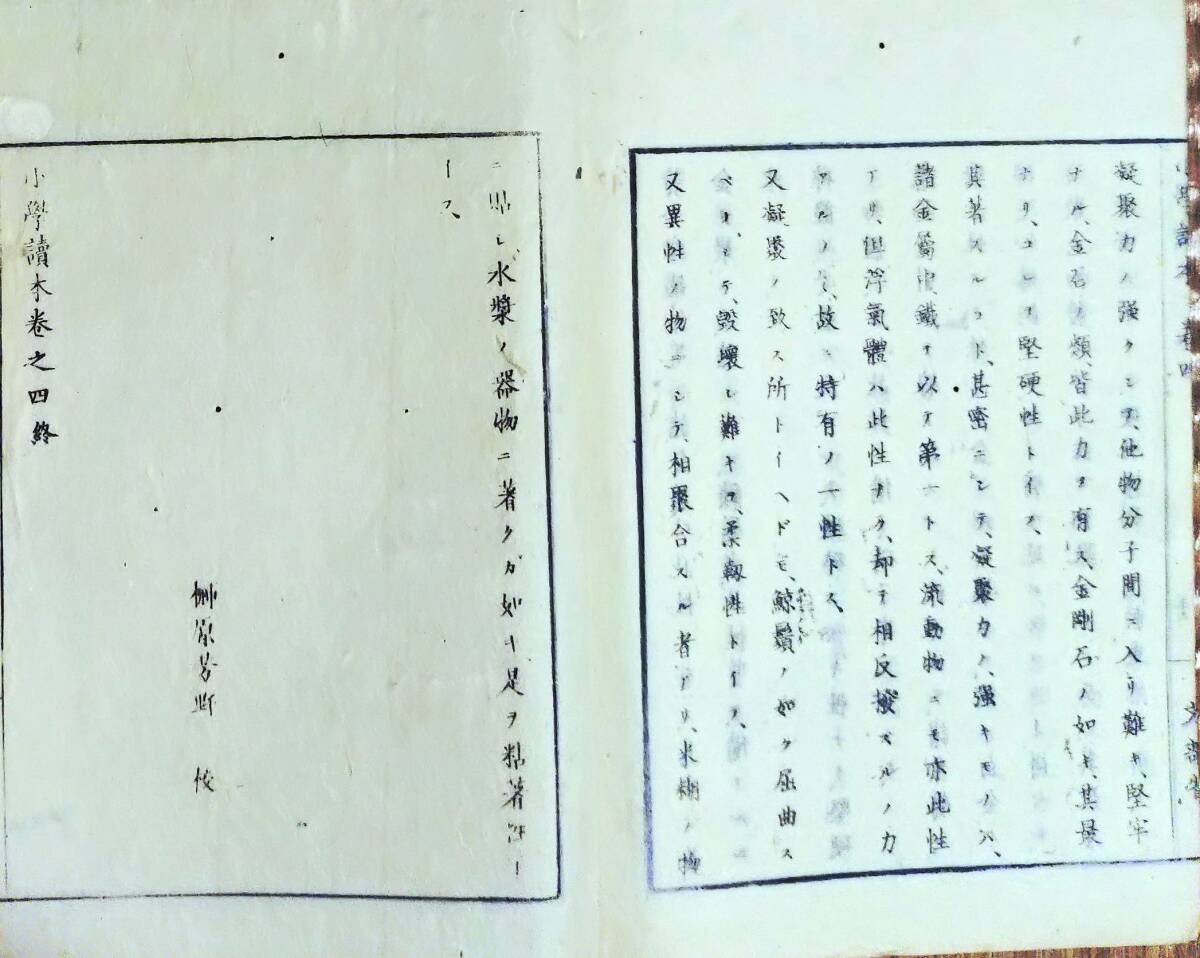 凝聚力ノ強クシテ、他物分子間ニ入リ難キ、堅牢
ナル、金石ノ類、皆此力ヲ有ス、金剛石ノ如キ、其最
ナリ、コレヲ堅硬性トイフ、
其著スルコト、甚密ニシテ、凝聚力ノ、強キモノハ、
諸金属中、鐵ヲ以テ第一トス、流動物ニモ亦此性
アリ、但浮氣體ハ此性ナク、却テ相反撥スルノ力
アルノミ、故ニ特有ノ一性トス、
又凝聚ノ致ス所トイヘドモ、鯨鬚ノ如ク屈曲ス
ベクシテ、毀壞シ難キヲ、柔靱性トイフ、
又異性ノ物ニシテ、相聚合スル者アリ、米糊ノ物
ニ貼シ、水漿ノ器物ニ著クガ如キ是ヲ粘著性ト
ス
榊原芳野 校
小學讀本卷之四終